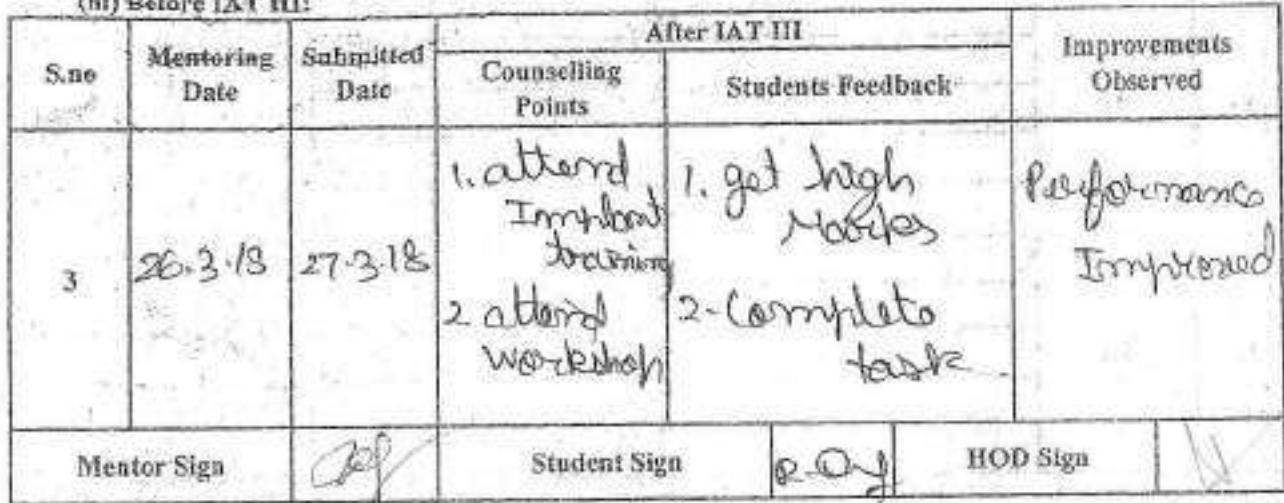 (iii) Before IAT III:
S.no
Mentoring Date
Submitted Date
After IAT III
Counselling Points
Students Feedback
Improvements Observed
3
26.3.18
27.3.18
1. attend
Implant
training
2 attend
workshop
1. get high
Marks
2- Complete
task
Performance
Improved
Mentor Sign
Student Sign
HOD Sign